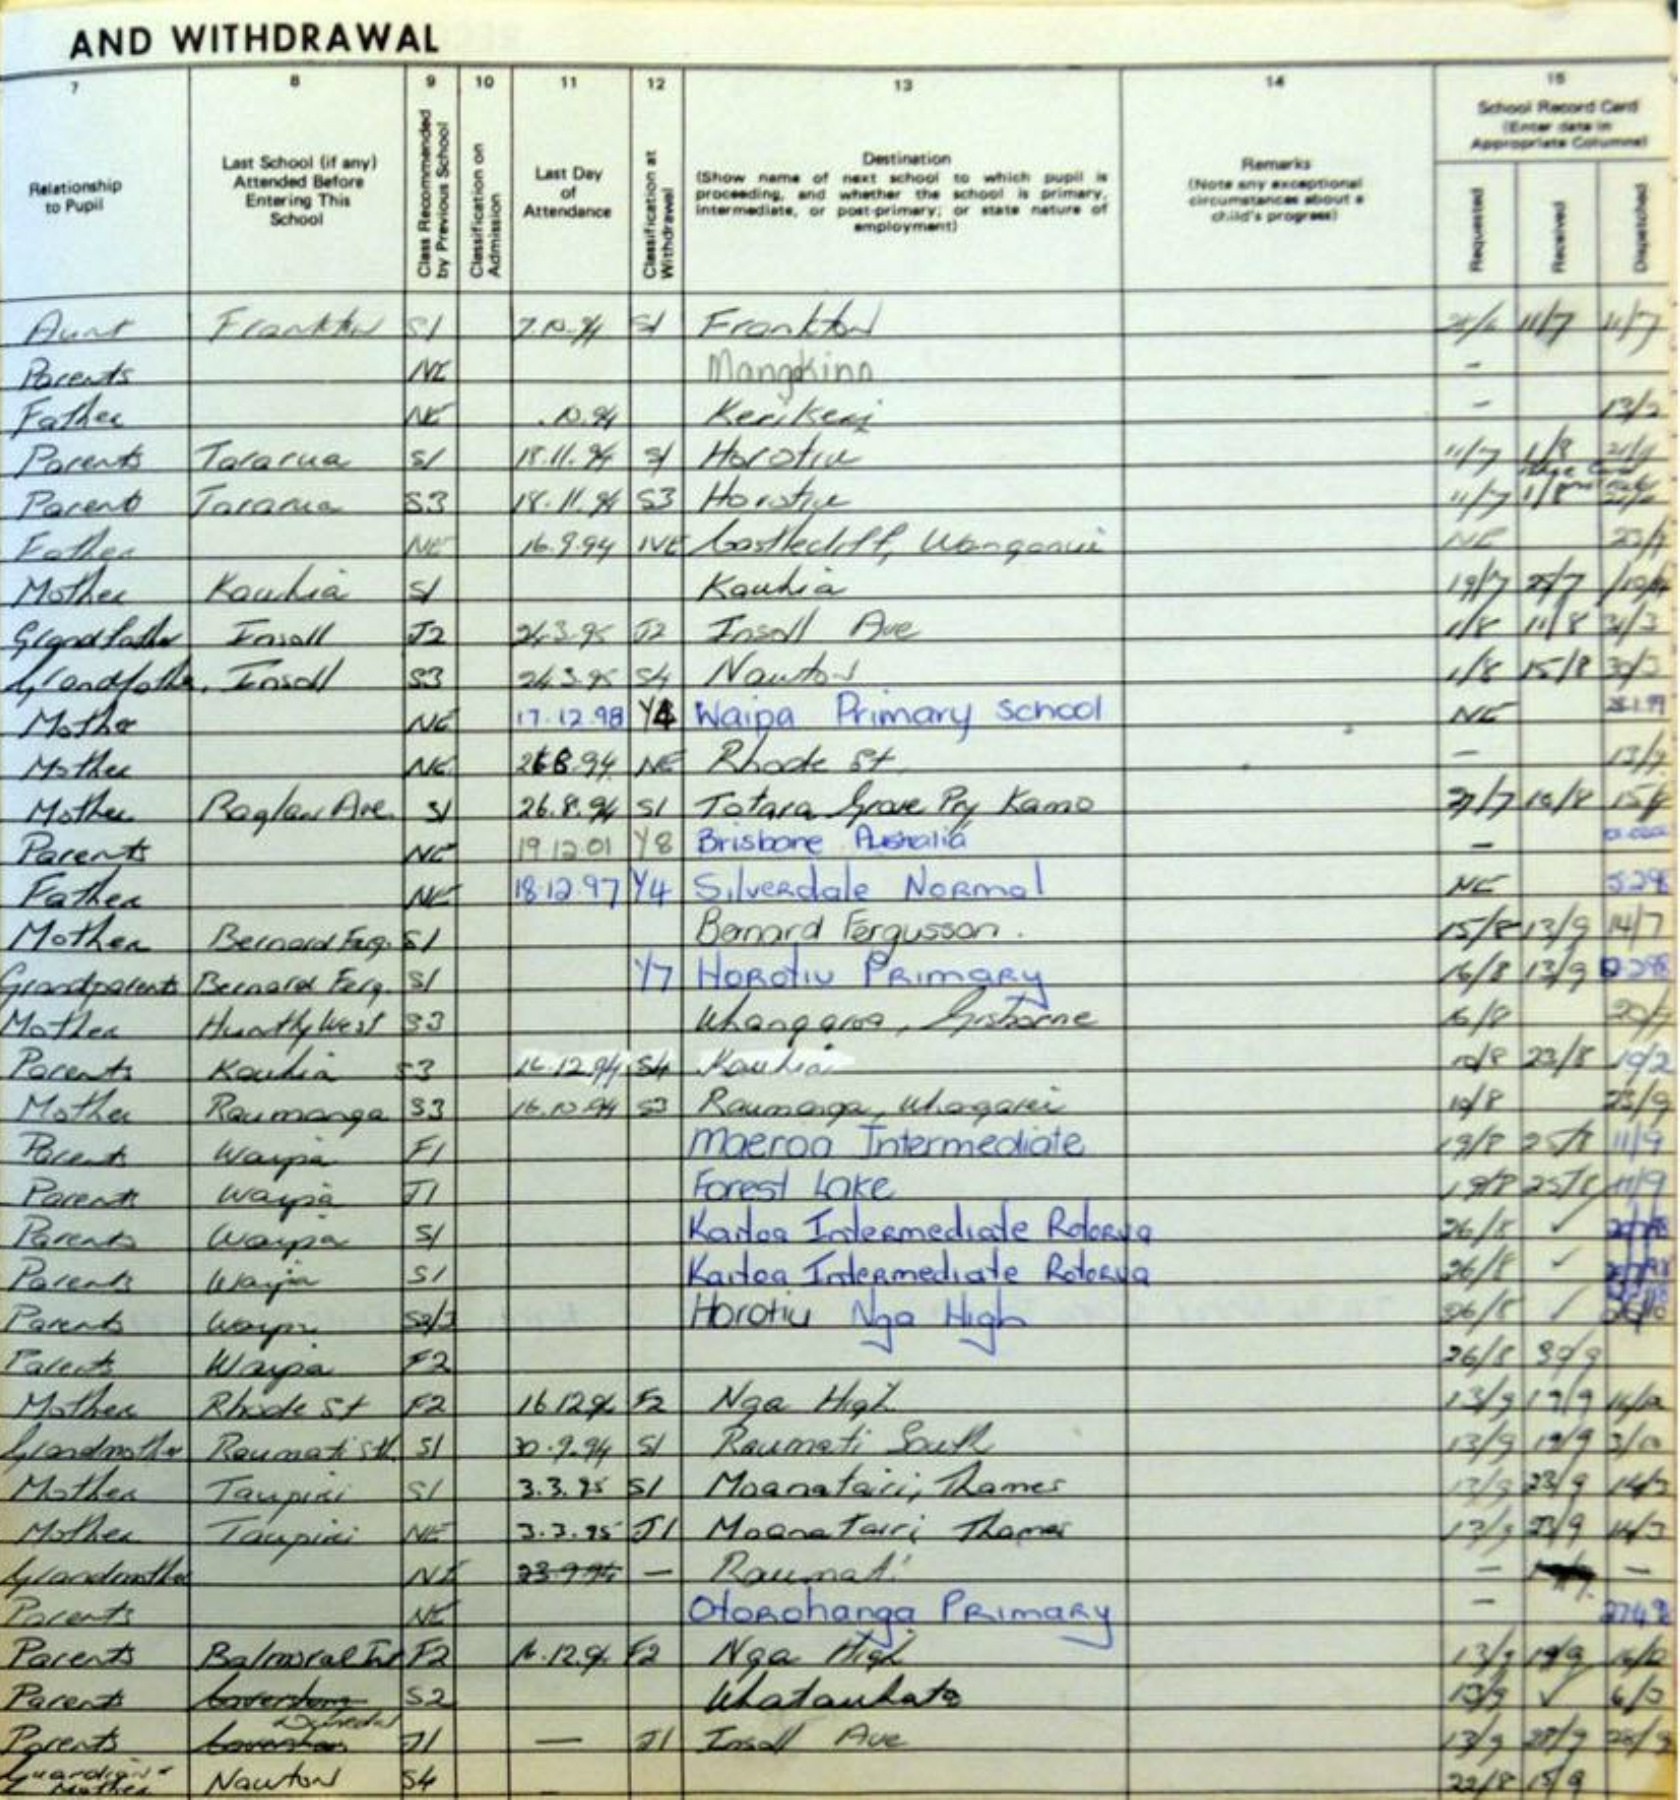 AND WITHDRAWAL
7 8 9 10 11 12 13 14 15
Relationship to Pupil
Last School (if any) Attended Before Entering This School
Class Recommended by Previous School
Classification on Admission
Last Day of Attendance
Classification at Withdrawal
Destination
(Show name of next school to which pupil is proceeding, and whether the school is primary, intermediate, or post-primary; or state nature of employment)
Remarks
(Note any exceptional circumstances about a child's progress)
School Record Card
(Enter date in Appropriate Columns)
Requested Received Dispatched
Aunt Frankton S1 7.10.94 S1 Frankton 11/7 11/7
Parents NE Mangakino -
Father NE .10.94 Kerikeri - 13/2
Parents Tararua S1 18.11.94 S1 Horotiu 11/7 1/8
Parents Tararua S3 18.11.94 S3 Horotiu 11/7 1/8
Father NE 16.9.94 NE Castlecliff, Wanganui NE
Mother Kawhia S1 Kawhia 19/7 25/7
Grandfather Insoll J2 24.3.95 J2 Insoll Ave 1/8 11/8 31/3
Grandfather Insoll S3 24.3.95 S4 Nawton 1/8 15/8 30/3
Mother NE 17.12.98 Y4 Waipa Primary School NE
Mother NE 26.8.94 NE Rhode St. - 13/9
Mother Raglan Ave. S1 26.8.94 S1 Totara Grove Pry Kamo 27/7 10/8
Parents NE 19.12.01 Y8 Brisbane Australia -
Father NE 18.12.97 Y4 Silverdale Normal NE
Mother Bernard Ferg. S1 Bernard Fergusson. 15/8 13/9 14/7
Grandparents Bernard Ferg. S1 Y7 Horotiu Primary 16/8 13/9
Mother Huntly West S3 Whangara, Gisborne 16/8
Parents Kawhia S3 16.12.94 S4 Kawhia 10/8 23/8 10/2
Mother Raumanga S3 16.10.94 S3 Raumanga, Whagarei 10/8 23/9
Parents Waipa F1 Maeroa Intermediate 19/8 25/8 11/9
Parents Waipa J1 Forest Lake 19/8 25/8 11/9
Parents Waipa S1 Kaitoa Intermediate Rotorua 26/8 ✓
Parents Waipa S1 Kaitoa Intermediate Rotorua 26/8 ✓
Parents Waipa S2/3 Horotiu Nga High 26/8 ✓
Parents Waipa F2 26/8 30/9
Mother Rhode St F2 16.12.94 F2 Nga High 13/9 19/9
Grandmother Raumati Sth S1 30.9.94 S1 Raumati South 13/9 19/9 3/10
Mother Taupiri S1 3.3.95 S1 Moanatairi, Thames 13/9 23/9 14/3
Mother Taupiri NE 3.3.95 J1 Moanatairi, Thames 13/9 23/9 14/3
Grandmother NE 23.9.94 — Raumati - -
Parents NE Otorohanga Primary -
Parents Balmoral Int F2 16.12.94 F2 Nga High 13/9 19/9
Parents Caversham S2 Whatawhata 13/9 ✓ 6/3
Parents Caversham J1 — J1 Insoll Ave 13/9
Guardian Mother Nawton S4 22/8 15/9